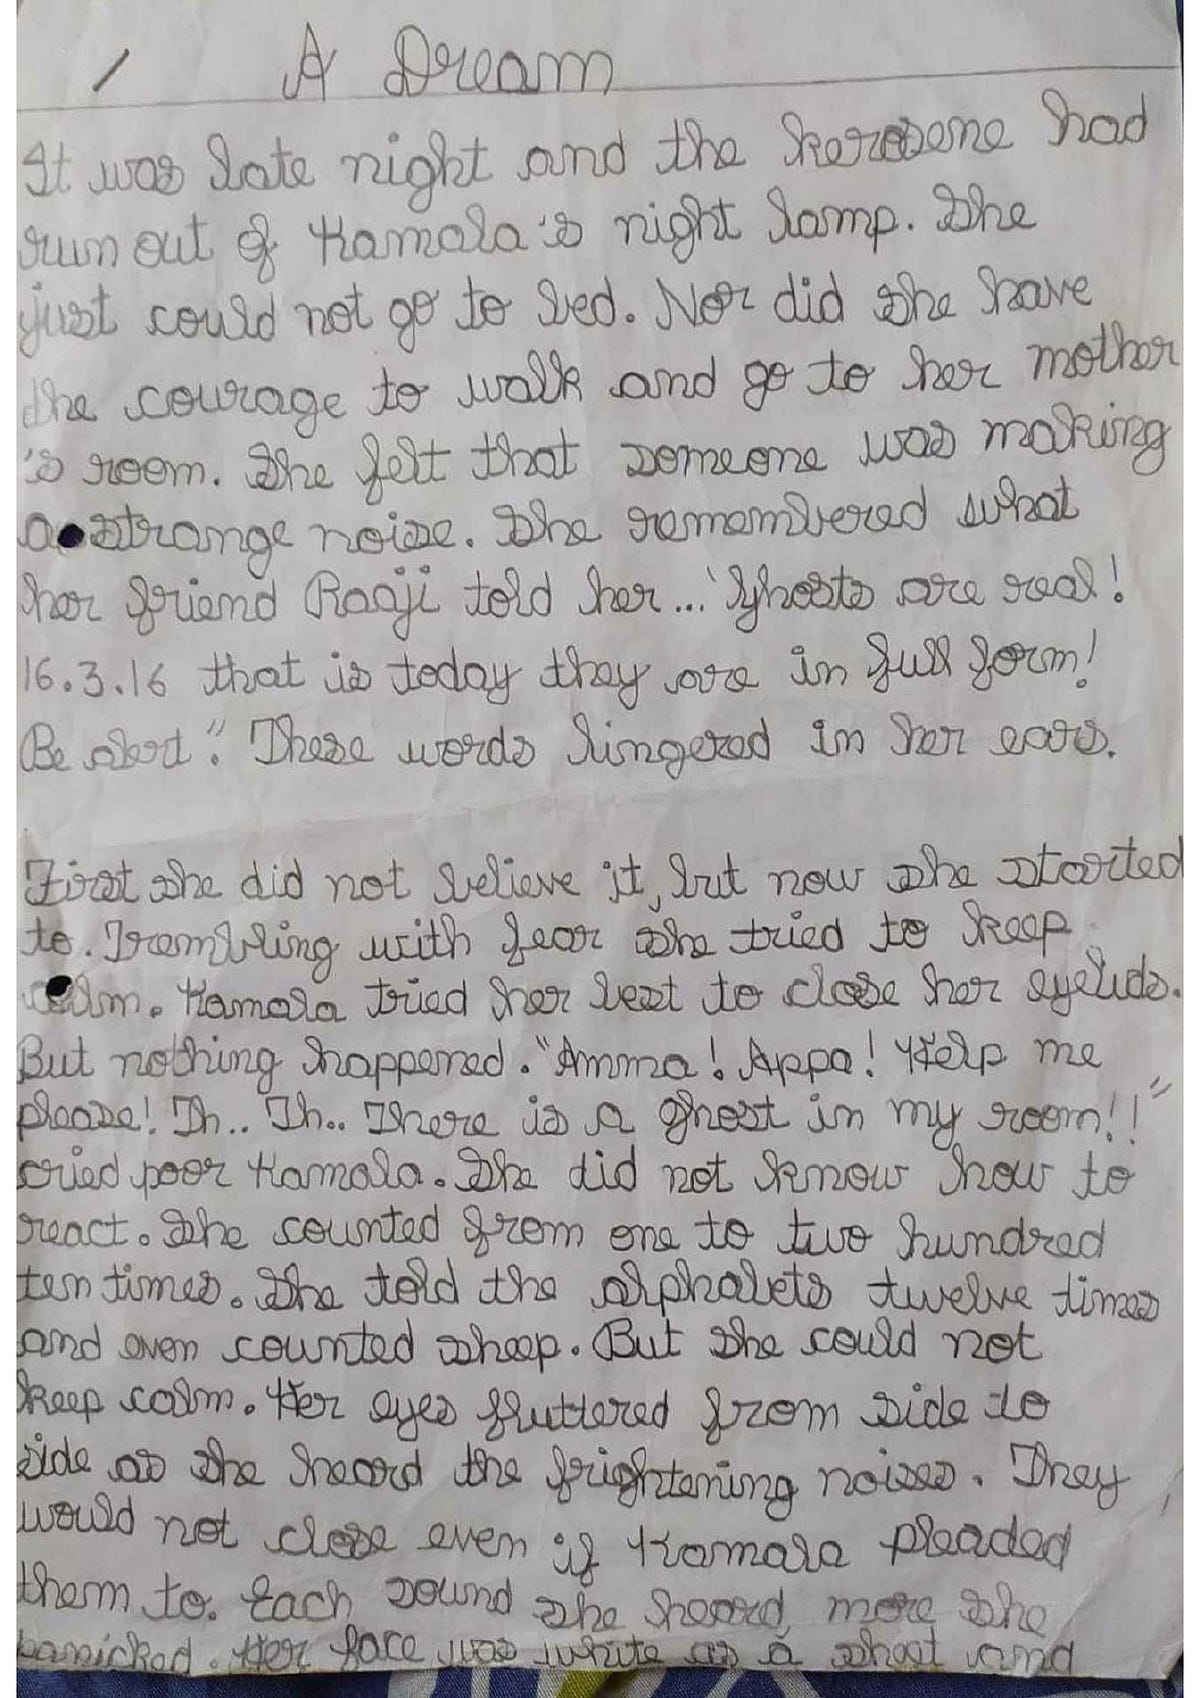 A Dream
It was late night and the kerosene had
run out of Kamala's night lamp. She
just could not go to bed. Nor did she have
the courage to walk and go to her mother
's room. She felt that someone was making
a strange noise. She remembered what
her friend Raaji told her... "Ghosts are real!
16.3.16 that is today they are in full form!
Be alert". These words lingered in her ears.
First she did not believe it, but now she started
to. Trembling with fear she tried to keep
calm. Kamala tried her best to close her eyelids.
But nothing happened. "Amma! Appa! Help me
please! Th.. Th.. There is a ghost in my room!!"
cried poor Kamala. She did not know how to
react. She counted from one to two hundred
ten times. She told the alphabets twelve times
and even counted sheep. But she could not
keep calm. Her eyes fluttered from side to
side as she heard the frightening noises. They
would not close even if Kamala pleaded
them to. Each sound she heard, more she
panicked. Her face was white as a sheet and